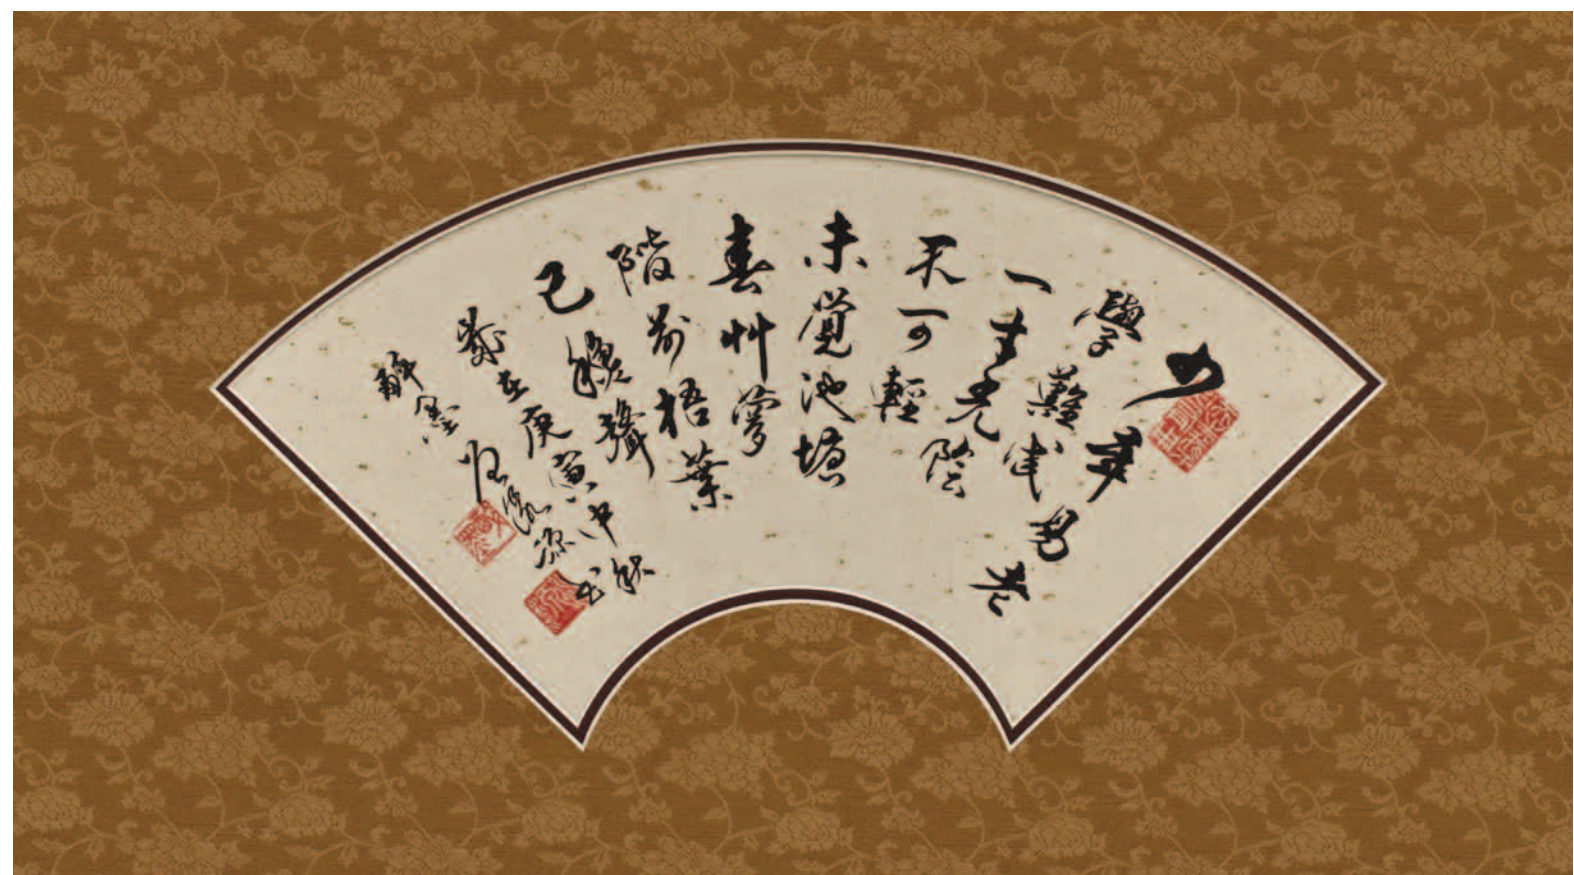 少年易老
學難成
一寸光陰
不可輕
未覺池塘
春艸夢
階前梧葉
已穐聲
歲在庚寅中秋
醉墨書